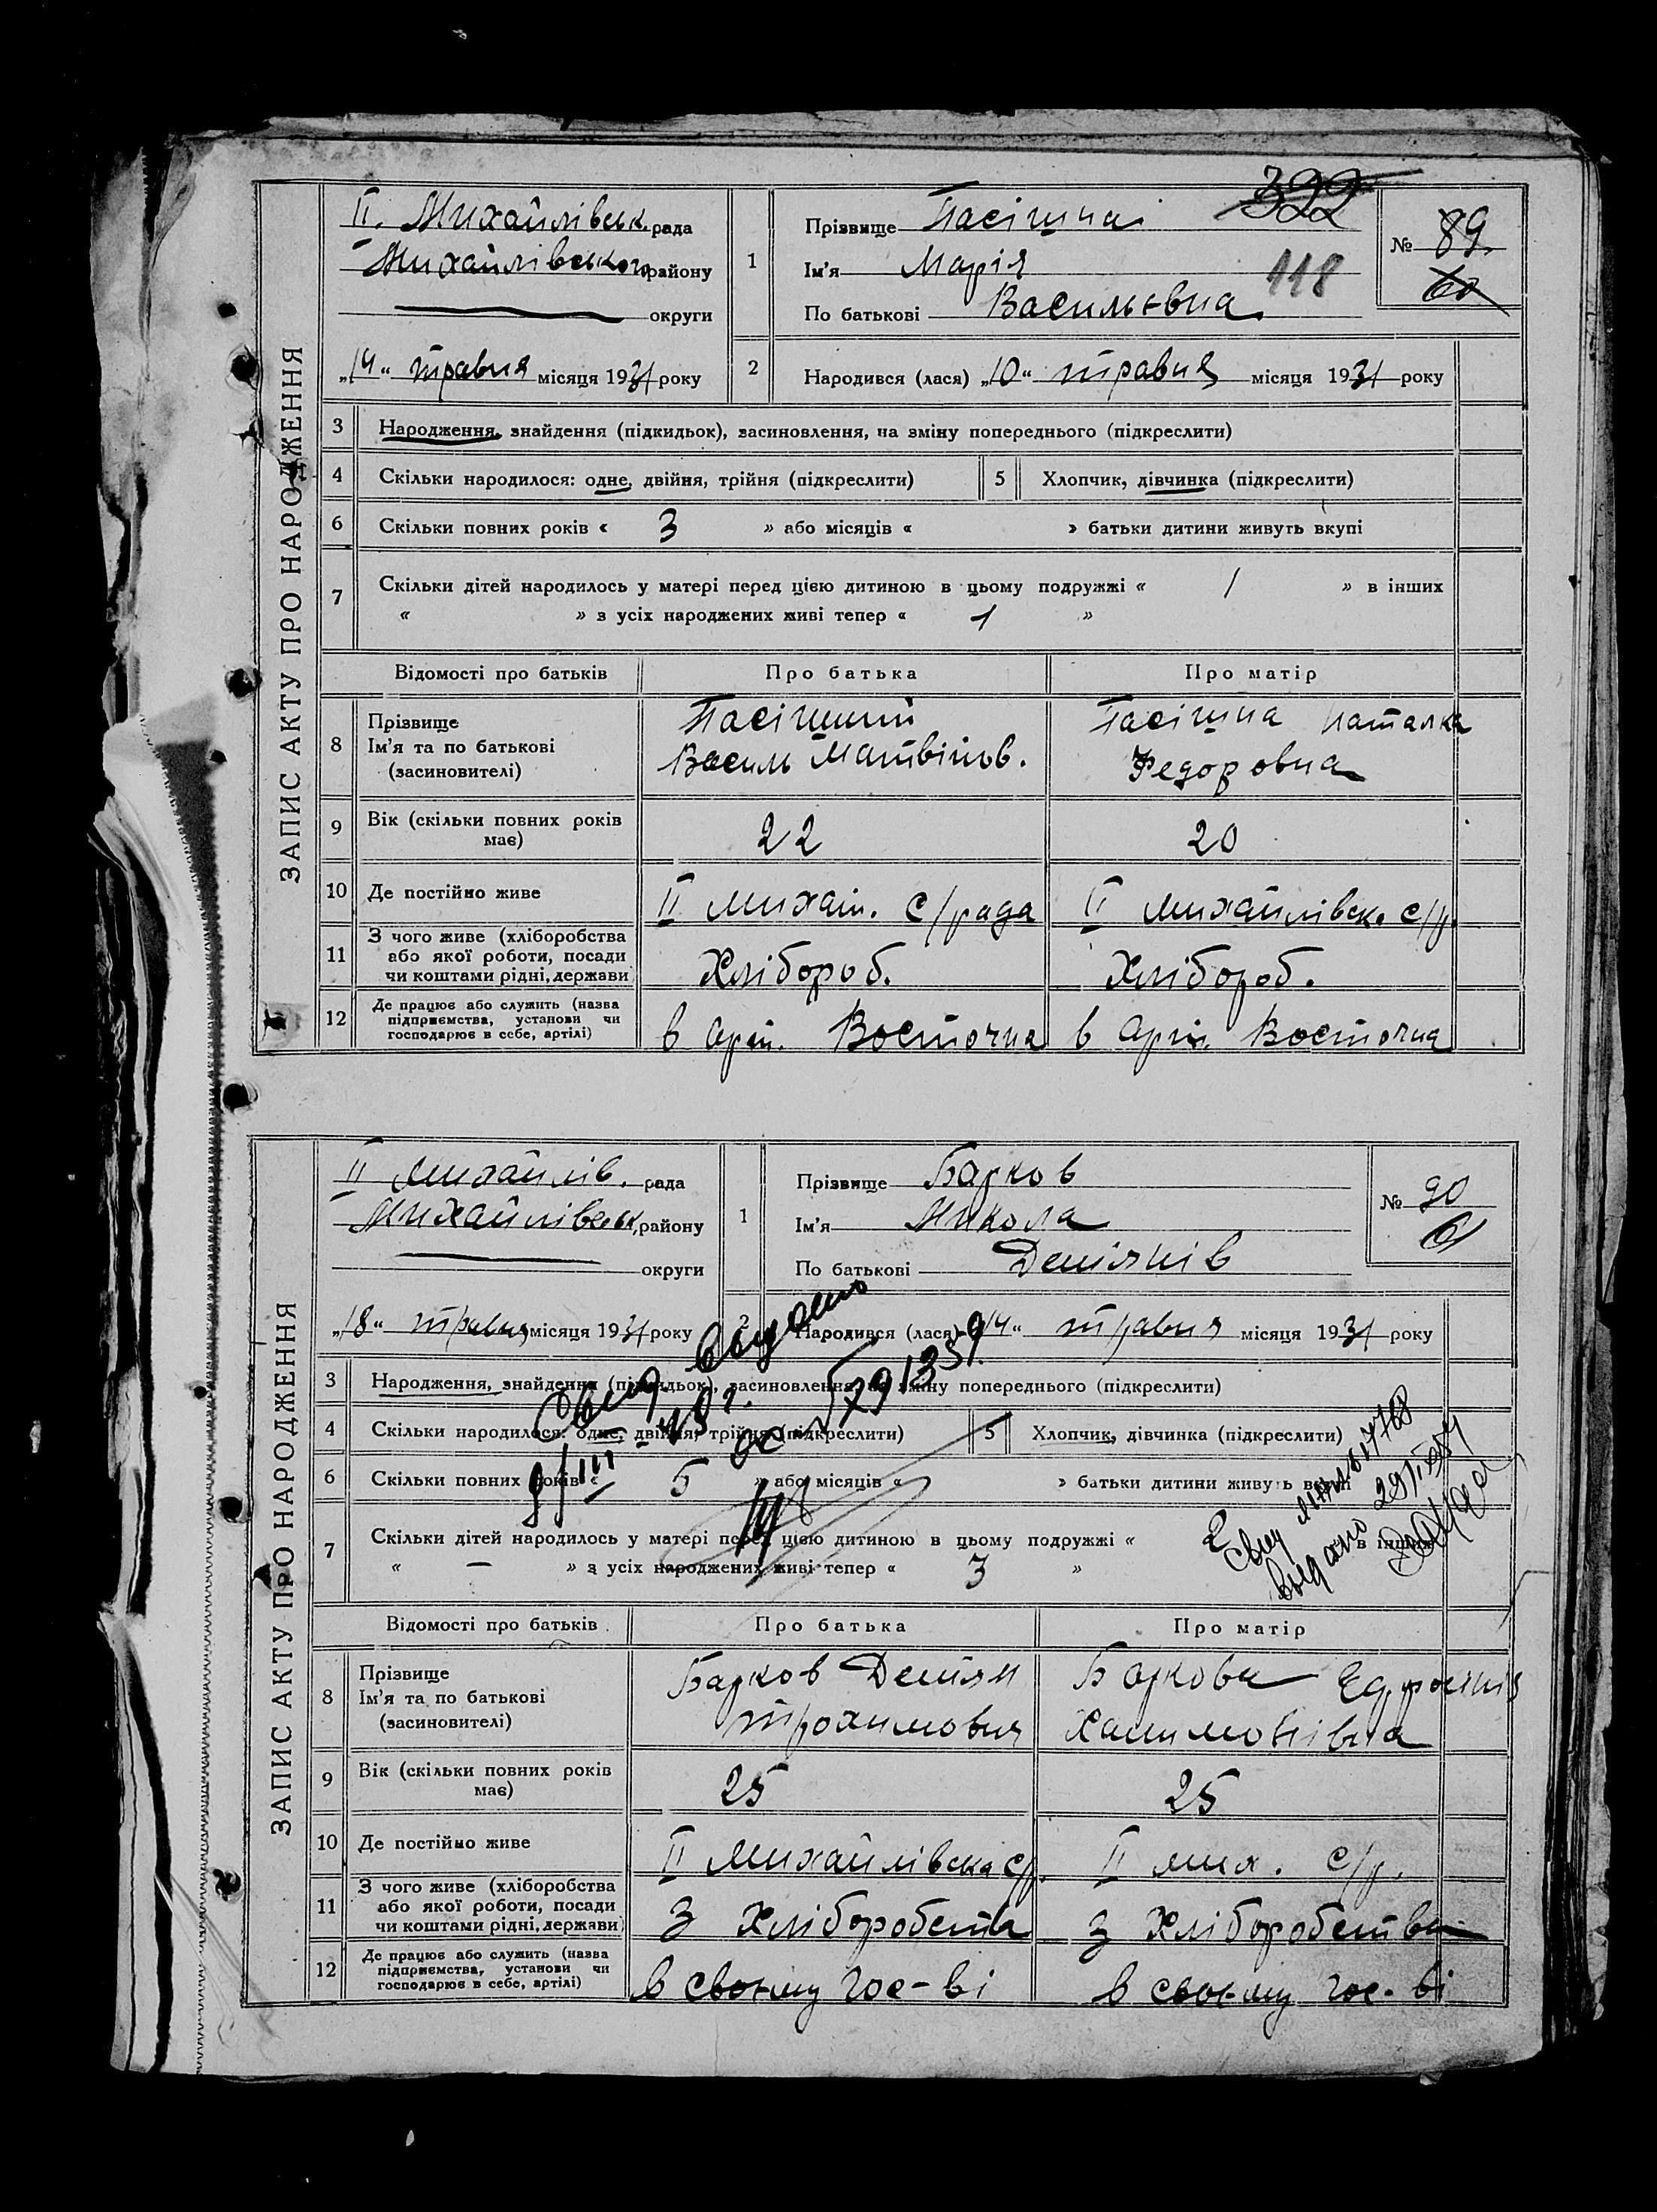 ЗАПИС АКТУ ПРО НАРОДЖЕННЯ
II. Михайлівськ. рада
Михайлівського району
округи
„14“ травня місяця 1931 року
1
Прізвище Пасішна
322
Ім'я Марія
118
По батькові Васильевна
№ 89.
60
2 Народився (лася) „10“ травня місяця 1931 року
3 Народження, знайдення (підкидьок), засиновлення, на зміну попереднього (підкреслити)
4 Скільки народилося: одне, двійня, трійня (підкреслити) 5 Хлопчик, дівчинка (підкреслити)
6 Скільки повних років « 3 » або місяців « » батьки дитини живуть вкупі
7 Скільки дітей народилось у матері перед цією дитиною в цьому подружжі « 1 » в інших
« » з усіх народжених живі тепер « 1 »
Відомості про батьків Про батька Про матір
8 Прізвище Ім'я та по батькові (засиновителі)
Пасішний
Василь Матвійов.
Пасішна Наталка
Федоровна
9 Вік (скільки повних років має) 22 20
10 Де постійно живе II михай. с/рада II михайлівск. с/р.
11 З чого живе (хліборобства або якої роботи, посади чи коштами рідні, держави) Хлібороб. Хлібороб.
12 Де працює або служить (назва підприємства, установи чи господарює в себе, артілі) в арт. Восточна в арт. Восточна
ЗАПИС АКТУ ПРО НАРОДЖЕННЯ
II михайлів. рада
Михайлівськ. району
округи
„18“ травня місяця 1931 року
1
Прізвище Барков
Ім'я Микола
По батькові Дем'янів
№ 90
61
2 Народився (лася) „14“ травня місяця 1931 року
3 Народження, знайдення (підкидьок), засиновлення, на зміну попереднього (підкреслити)
4 Скільки народилося: одне, двійня, трійня (підкреслити) 5 Хлопчик, дівчинка (підкреслити)
6 Скільки повних років « 5 » або місяців « » батьки дитини живуть вкупі
7 Скільки дітей народилось у матері перед цією дитиною в цьому подружжі « 2 » в інших
« — » з усіх народжених живі тепер « 3 »
Свид. выдано
Свид
выдано
Відомості про батьків Про батька Про матір
8 Прізвище Ім'я та по батькові (засиновителі)
Барков Демян
трохимович
Баркова
9 Вік (скільки повних років має) 25 25
10 Де постійно живе II Михайлівска с/р. II мих. с/р.
11 З чого живе (хліборобства або якої роботи, посади чи коштами рідні, держави) З хліборобств З хліборобства
12 Де працює або служить (назва підприємства, установи чи господарює в себе, артілі) в своєму гос-ві в своєму гос-ві